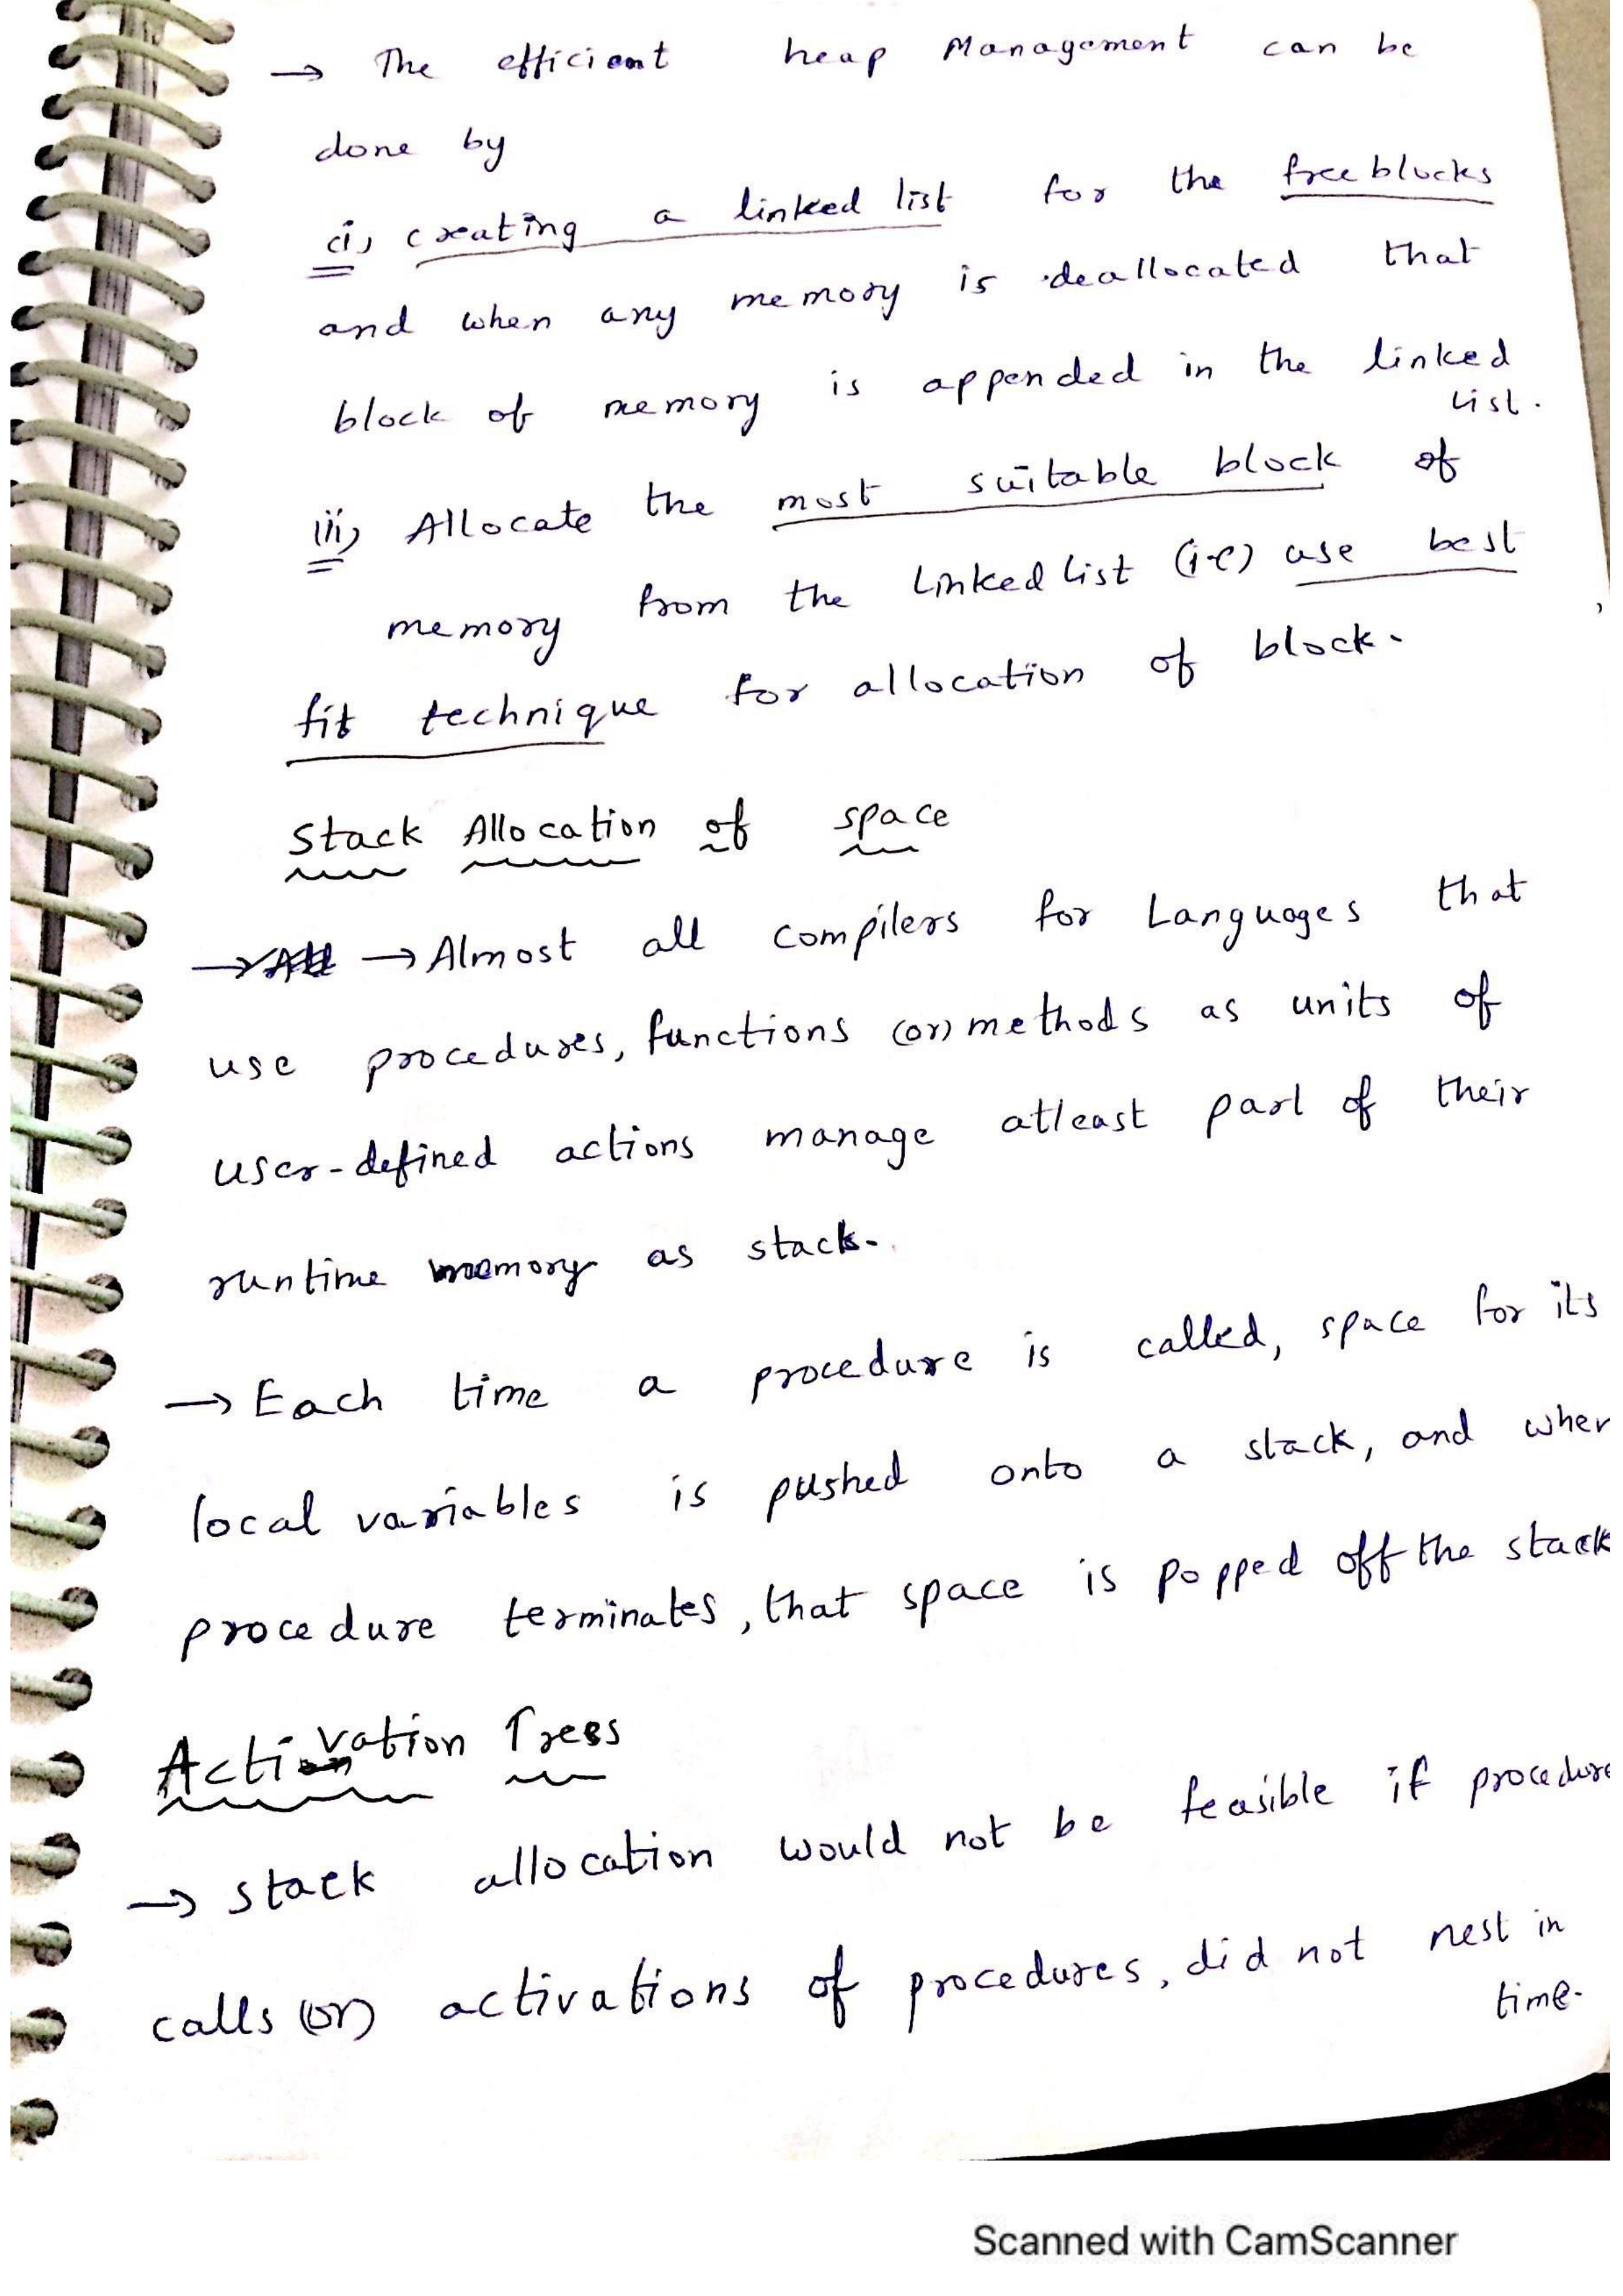 → The efficient heap Management can be
done by
(i) creating a linked list for the free blocks
and when any memory is deallocated that
block of memory is appended in the linked
list.
(ii) Allocate the most suitable block of
memory from the Linked list (i.e) use best
fit technique for allocation of block.
Stack Allocation of space
→ → Almost all compilers for Languages that
use procedures, functions (or) methods as units of
user-defined actions manage atleast part of their
runtime memory as stack.
→ Each time a procedure is called, space for its
local variables is pushed onto a stack, and when
procedure terminates, that space is popped off the stack
Activation Trees
→ stack allocation would not be feasible if procedure
calls (or) activations of procedures, did not nest in
time.
Scanned with CamScanner